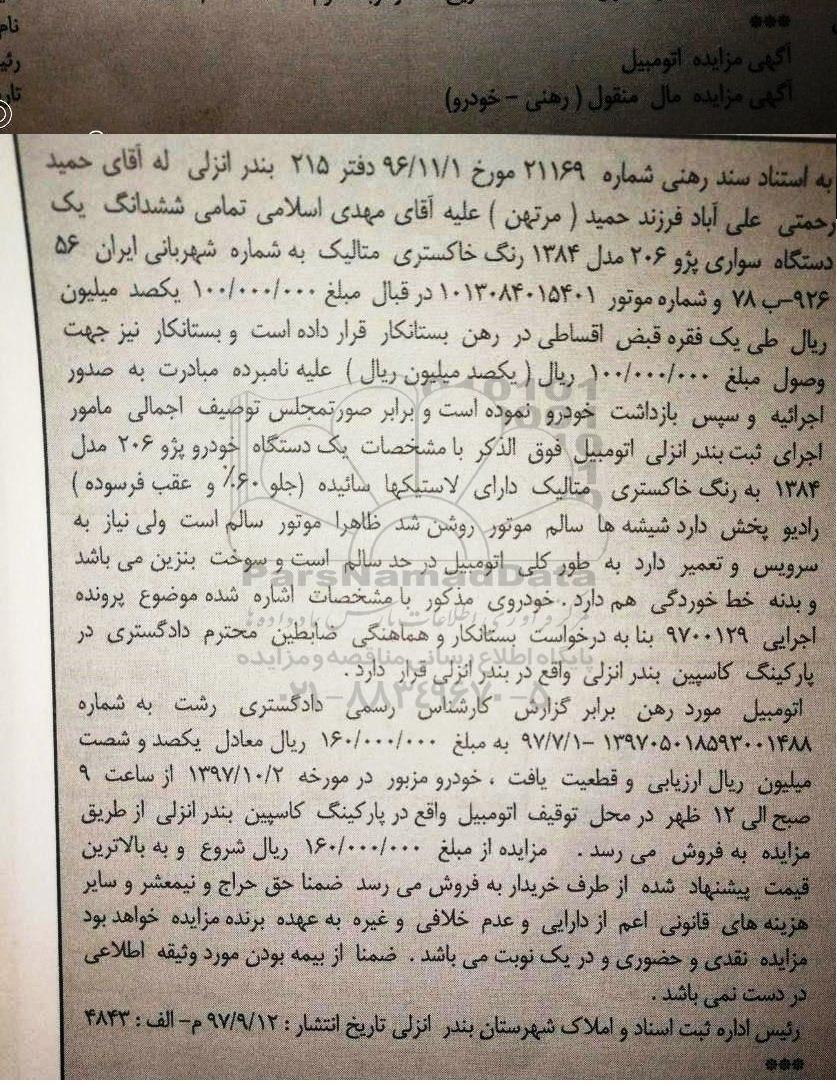 ***
نام
آگهی مزایده اتومبیل
آگهی مزایده مال منقول ( رهنی – خودرو)
به استناد سند رهنی شماره ۲۱۱۶۹ مورخ ۹۶/۱۱/۱ دفتر ۲۱۵ بندر انزلی له آقای حمید
رحمتی علی آباد فرزند حمید ( مرتهن ) علیه آقای مهدی اسلامی تمامی ششدانگ یک
دستگاه سواری پژو ۲۰۶ مدل ۱۳۸۴ رنگ خاکستری متالیک به شماره شهربانی ایران ۵۶
۹۲۶–ب ۷۸ و شماره موتور ۱۰۱۳۰۸۴۰۱۵۴۰۱ در قبال مبلغ ۱۰۰/۰۰۰/۰۰۰ یکصد میلیون
ریال طی یک فقره قبض اقساطی در رهن بستانکار قرار داده است و بستانکار نیز جهت
وصول مبلغ ۱۰۰/۰۰۰/۰۰۰ ریال ( یکصد میلیون ریال ) علیه نامبرده مبادرت به صدور
اجرائیه و سپس بازداشت خودرو نموده است و برابر صورتمجلس توصیف اجمالی مامور
اجرای ثبت بندر انزلی اتومبیل فوق الذکر با مشخصات یک دستگاه خودرو پژو ۲۰۶ مدل
۱۳۸۴ به رنگ خاکستری متالیک دارای لاستیکها سائیده (جلو ۶۰٪ و عقب فرسوده )
رادیو پخش دارد شیشه ها سالم موتور روشن شد ظاهرا موتور سالم است ولی نیاز به
سرویس و تعمیر دارد به طور کلی اتومبیل در حد سالم است و سوخت بنزین می باشد
و بدنه خط خوردگی هم دارد . خودروی مذکور با مشخصات اشاره شده موضوع پرونده
اجرایی ۹۷۰۰۱۲۹ بنا به درخواست بستانکار و هماهنگی ضابطین محترم دادگستری در
پارکینگ کاسپین بندر انزلی واقع در بندر انزلی قرار دارد .
اتومبیل مورد رهن برابر گزارش کارشناس رسمی دادگستری رشت به شماره
۱۳۹۷۰۵۰۱۸۵۹۳۰۰۱۴۸۸ –۹۷/۷/۱ به مبلغ ۱۶۰/۰۰۰/۰۰۰ ریال معادل یکصد و شصت
میلیون ریال ارزیابی و قطعیت یافت ، خودرو مزبور در مورخه ۱۳۹۷/۱۰/۲ از ساعت ۹
صبح الی ۱۲ ظهر در محل توقیف اتومبیل واقع در پارکینگ کاسپین بندر انزلی از طریق
مزایده به فروش می رسد . مزایده از مبلغ ۱۶۰/۰۰۰/۰۰۰ ریال شروع و به بالاترین
قیمت پیشنهاد شده از طرف خریدار به فروش می رسد ضمنا حق حراج و نیمعشر و سایر
هزینه های قانونی اعم از دارایی و عدم خلافی و غیره به عهده برنده مزایده خواهد بود
مزایده نقدی و حضوری و در یک نوبت می باشد . ضمنا از بیمه بودن مورد وثیقه اطلاعی
در دست نمی باشد .
رئیس اداره ثبت اسناد و املاک شهرستان بندر انزلی تاریخ انتشار : ۹۷/۹/۱۲ م– الف : ۴۸۴۳
***
ParsNamadData
پایگاه اطلاع رسانی مناقصه و مزایده
۰۲۱–۸۸۳۴۹۶۷۰–۵